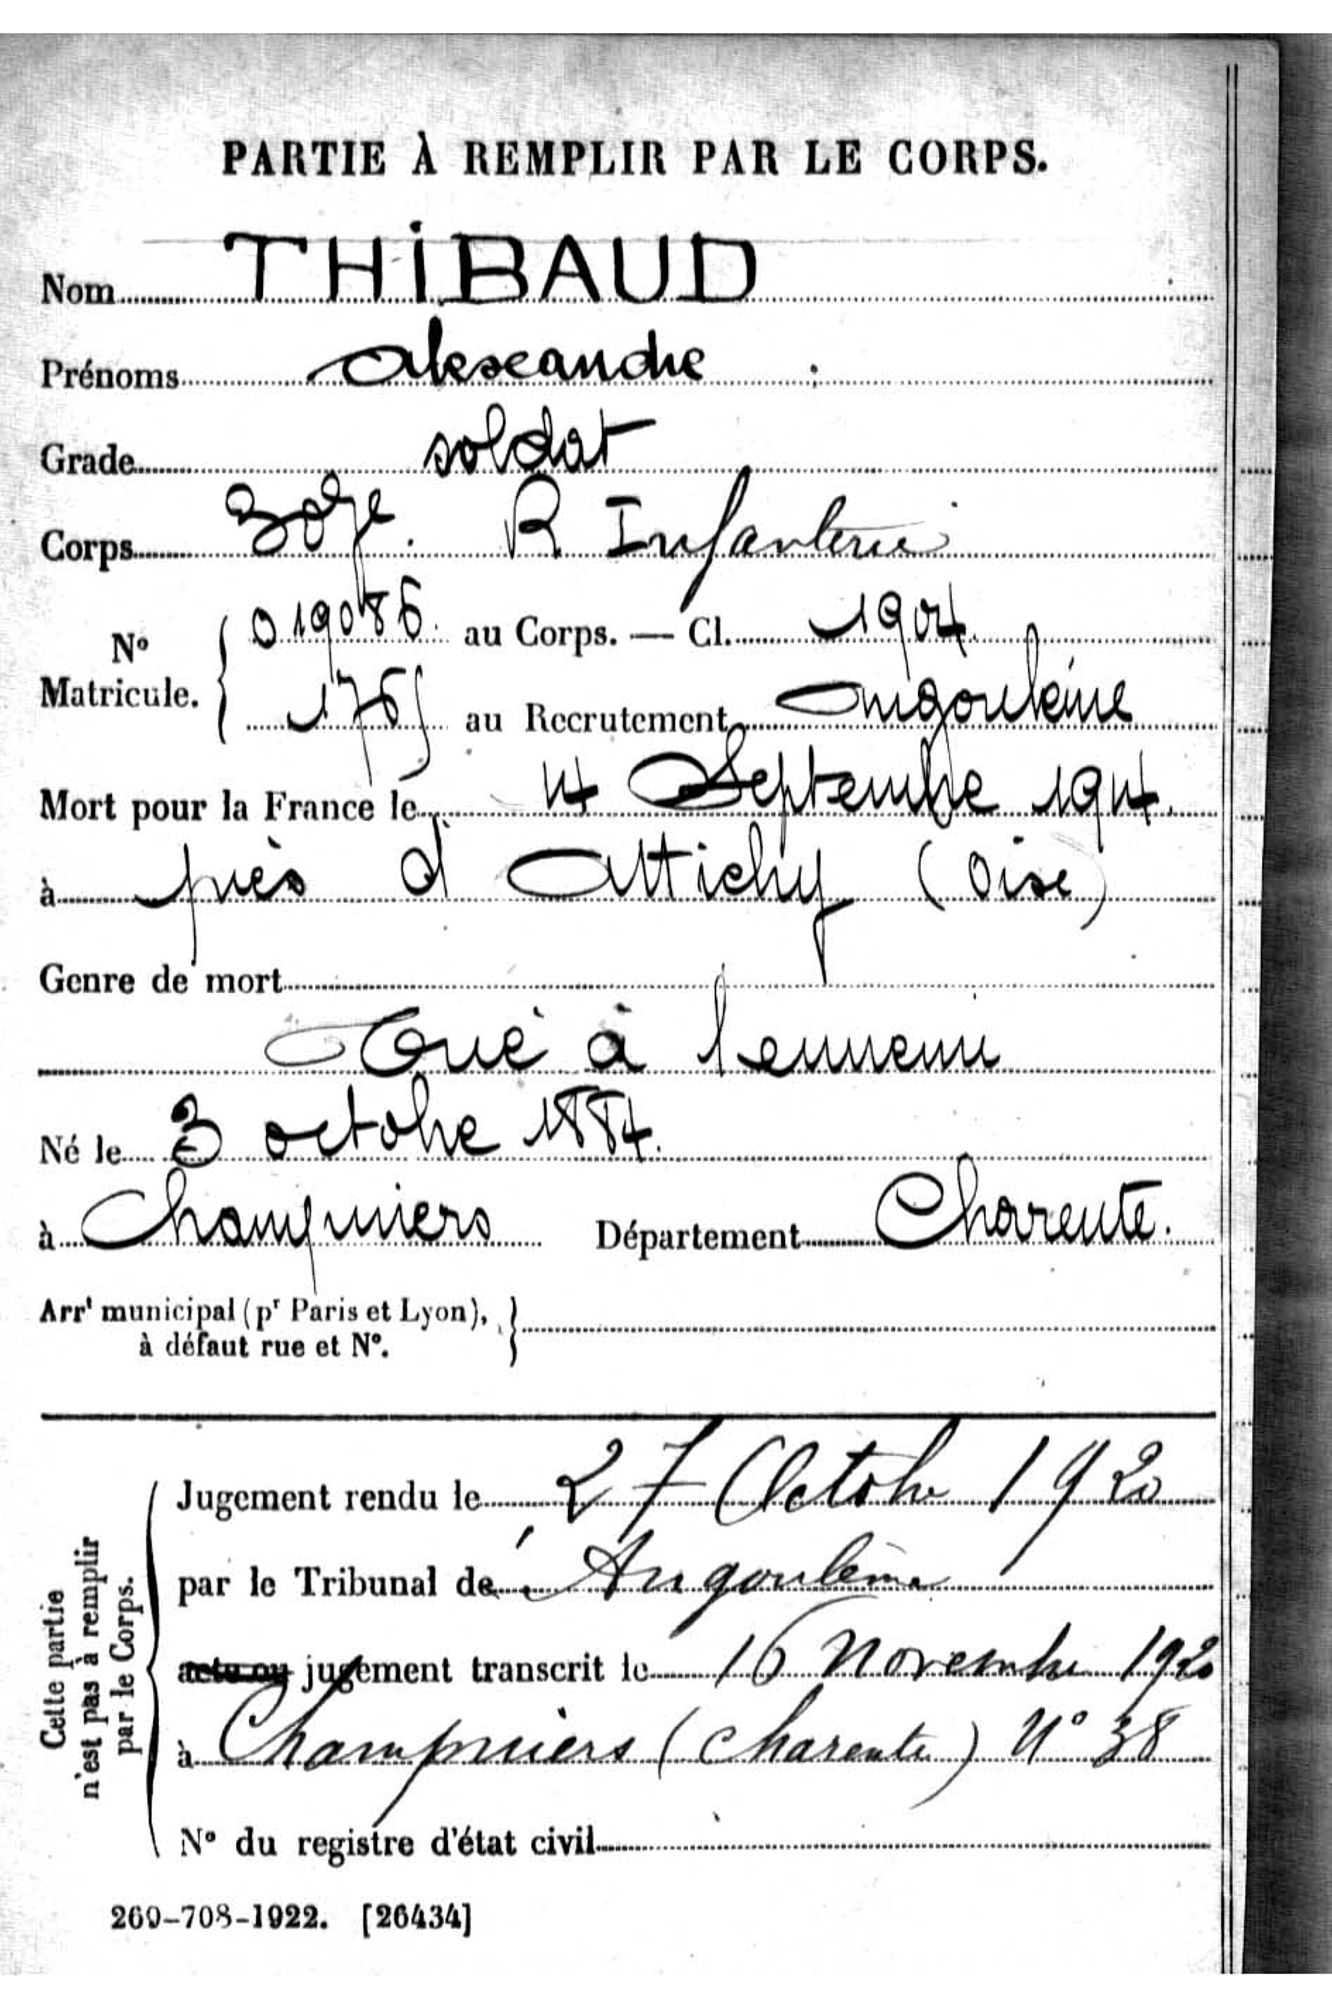 PARTIE À REMPLIR PAR LE CORPS.
Nom THIBAUD
Prénoms Alexandre
Grade soldat
Corps 307e. R Infanterie
No Matricule. { 019086. au Corps. — Cl. 1904.
175 au Recrutement Angoulême
Mort pour la France le 14 Septembre 1914.
à près d'Attichy (Oise)
Genre de mort
Tué à l'ennemi
Né le 3 octobre 1884.
à Champniers Département Charente.
Arrt municipal (pr Paris et Lyon), }
à défaut rue et N°.
Cette partie
n'est pas à remplir
par le Corps.
Jugement rendu le 27 Octobre 1920
par le Tribunal de Angoulême
acte ou jugement transcrit le 16 Novembre 1920
à Champniers (Charente) N° 38
N° du registre d'état civil
269-708-1922. [26434]